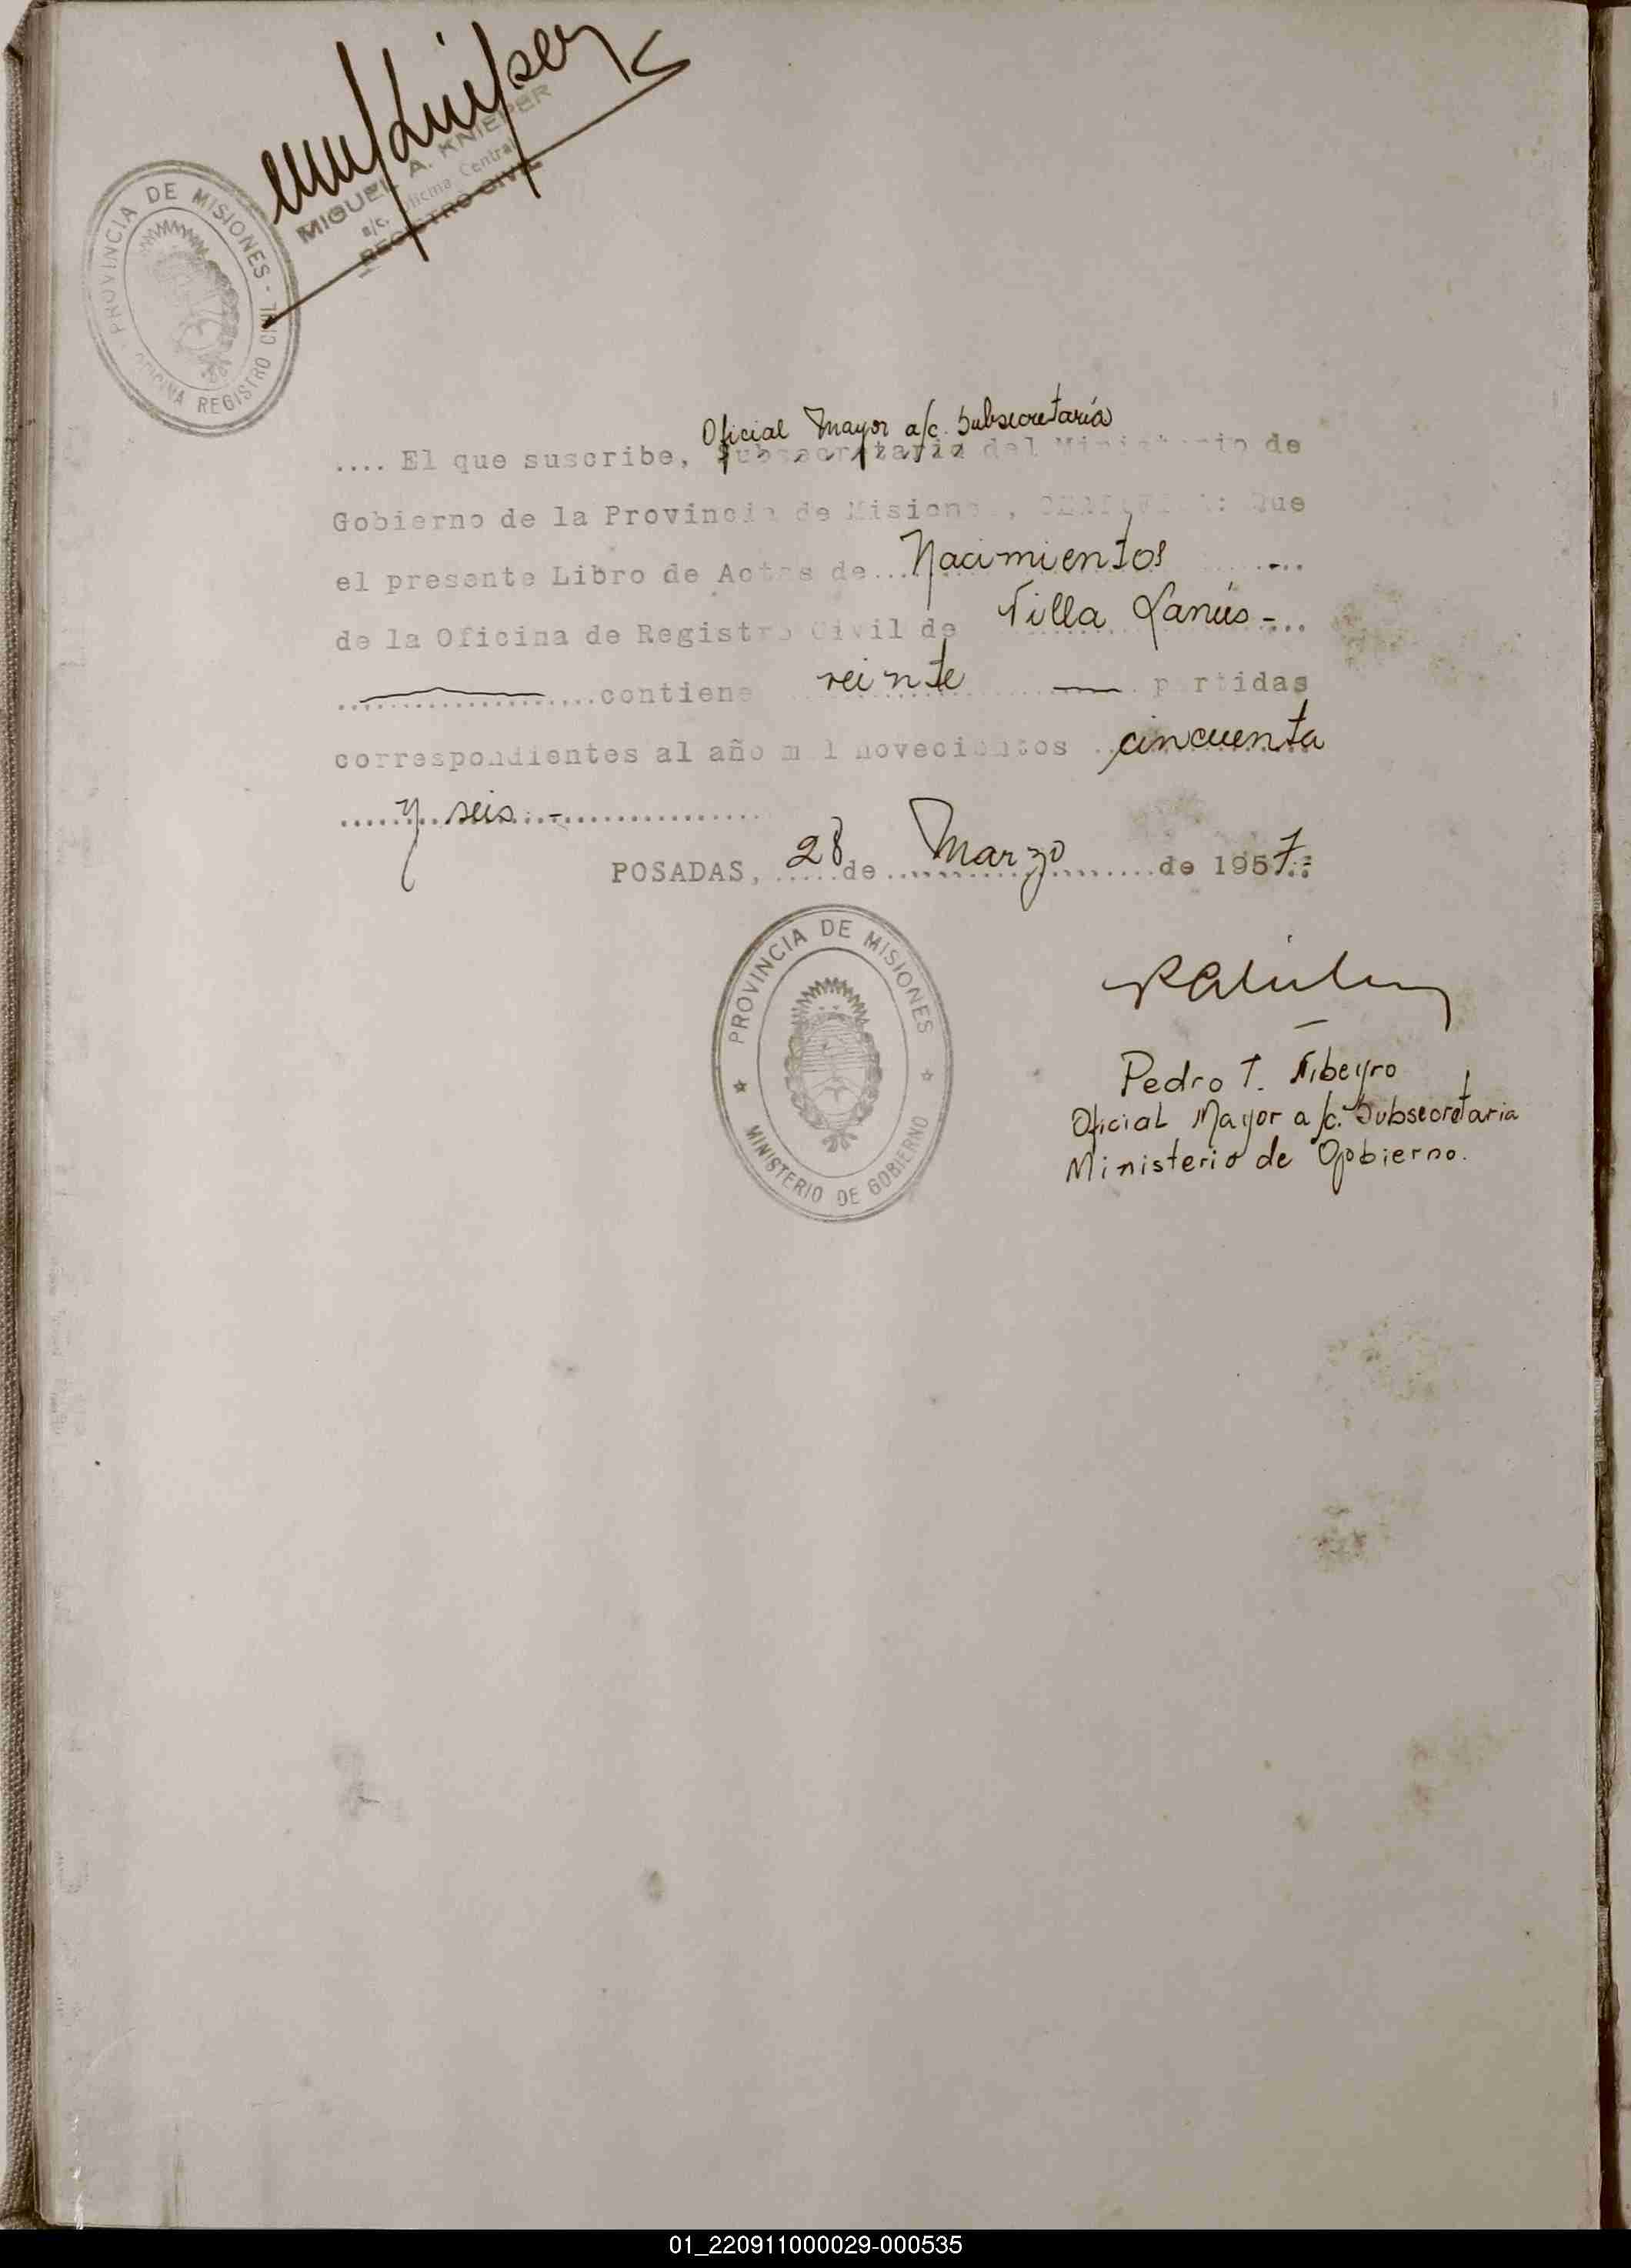 MIGUEL A. KNIEPER
a/c. Oficina Central
REGISTRO CIVIL
PROVINCIA DE MISIONES - OFICINA REGISTRO CIVIL
Oficial Mayor a/c. Subsecretaría
.... El que suscribe, Subsecretario del Ministerio de
Gobierno de la Provincia de Misiones, CERTIFICA: Que
el presente Libro de Actas de... Nacimientos ...
de la Oficina de Registro Civil de Villa Lanús -...
....................contiene veinte partidas
correspondientes al año mil novecientos cincuenta
.... y seis.-..............
POSADAS, 28 de Marzo de 1957.-
PROVINCIA DE MISIONES
MINISTERIO DE GOBIERNO
Pedro T. Ribeyro
Oficial Mayor a/c. Subsecretaria
Ministerio de Gobierno.
01_220911000029-000535